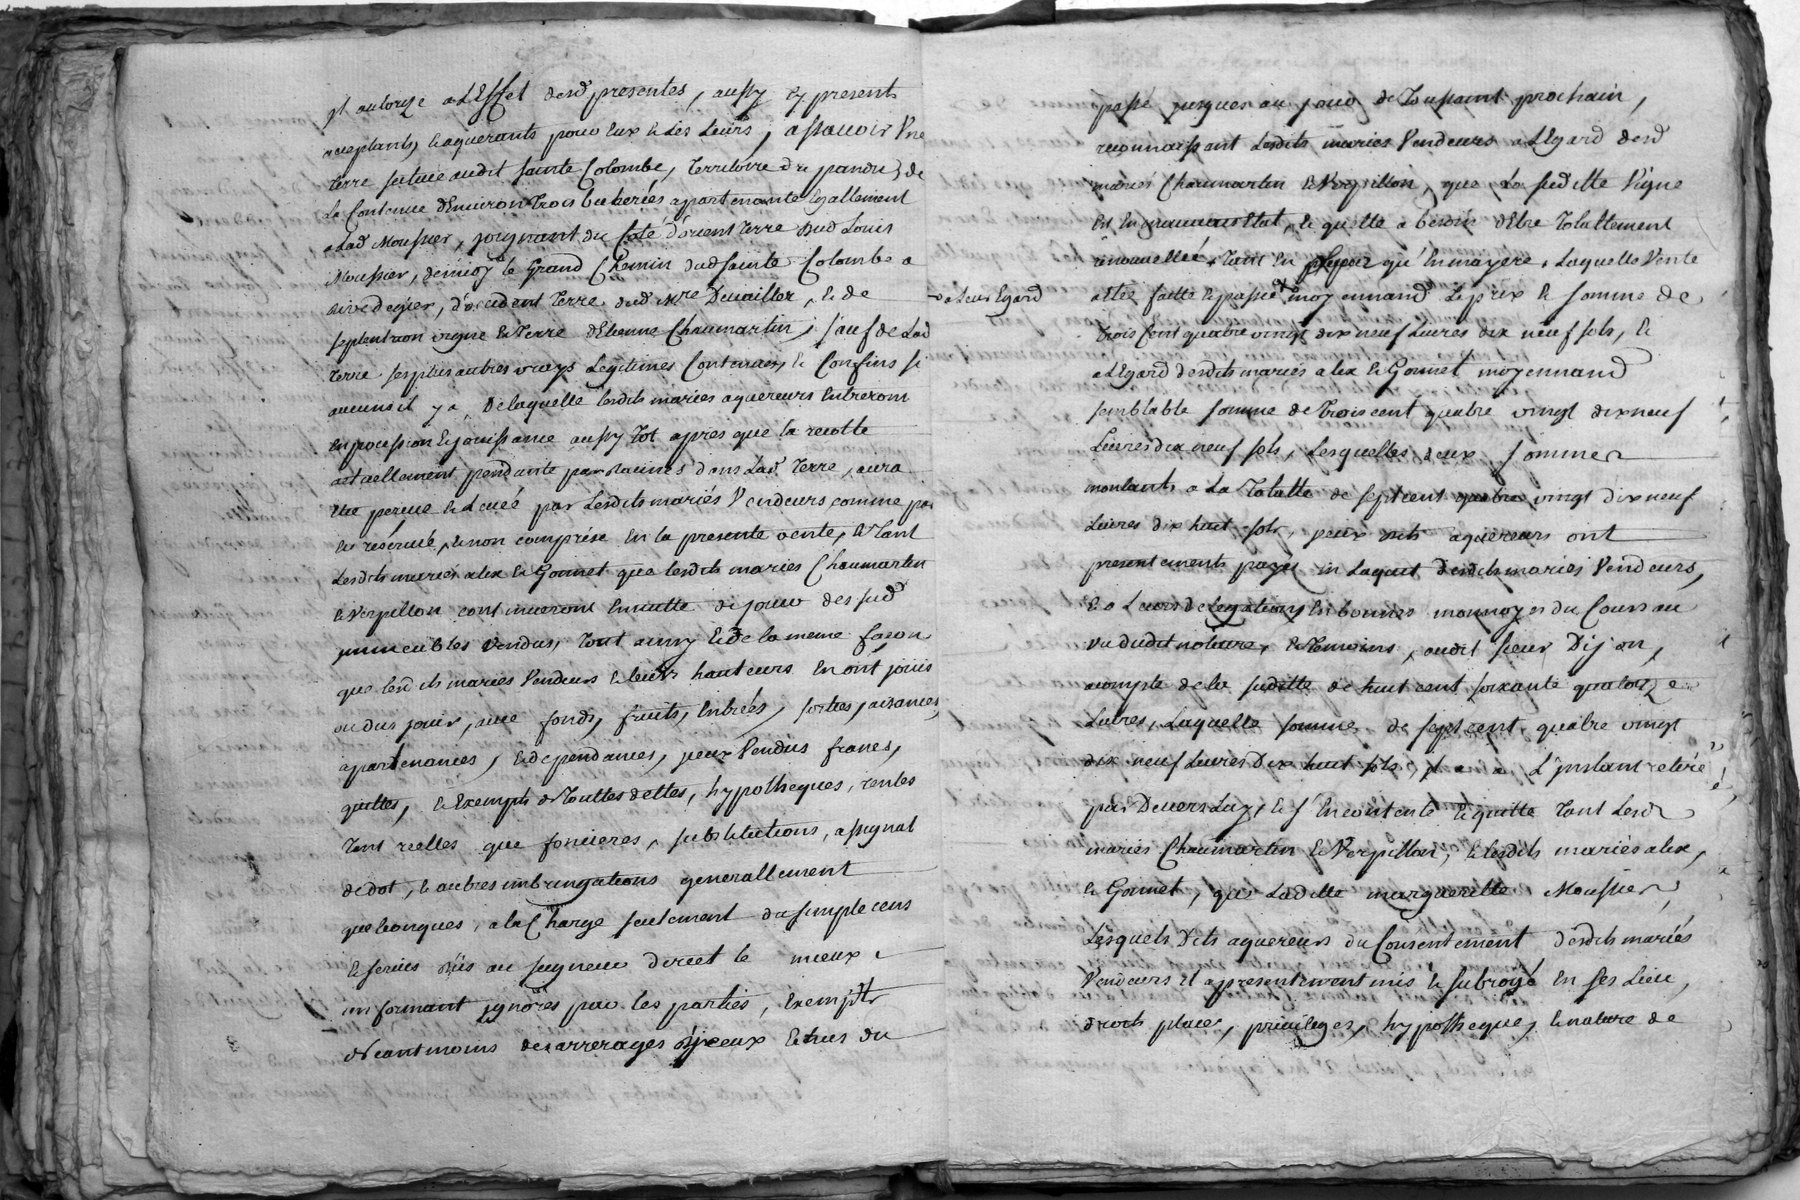 et autorizé a L'Effet desd presentes, aussy Ey presents
aceptants, Et aquerants pour Eux & Les Leurs, assavoir Une
Terre scituée audit sainte Colombe, Territoire du pandu, de
La Contenue d'Environ Trois bicherées apartenante Egallement
a Lad Moussier, joignant du Coté d'orient Terre dud Louis
Moussier, de midy le Grand Chemin dud sainte Colombe a
rivedegier, d'occident Terre dud Devailler, & de
septentrion vigne & Terre d'Etienne Chaumartin, sauf de Lad
Terre ses plus autres vrays Legitimes Contenues, & Confins si
aucuns il y a, De laquelle lesdits mariés aquereurs Entreront
En pocession & jouissance aussy Tot apres que la recolte
actuellement pendante par Racines dans Lad Terre, aura
Eté percue & Levée par Lesdits mariés Vendeurs comme
Et reservée, & non comprise En la presente vente, & Tant
Lesdits mariés alex & Gonnet que lesdits mariés Chaumartin
& Verpillon continueront Ensuitte de jouir des sud
immeubles vendus, Tout ainsy & de la meme facon
que lesdits mariés Vendeurs & leurs hauteurs En ont joüis
ou dus joüir, avec fonds, fruits, Entrées, sorties, aizances,
apartenances, & dependances, yceux Vendus francs,
quittes, & Exempts de Touttes dettes, hypotheques, rentes
Tant reelles que foncieres, substitutions, assignat
de dot, & autres imbringations generallement
quelconques, a la Charge seulement du simple cens
& servis dûs au seigneur direct le mieux
informant ignorés par les parties, Exempts
Neantmoins des arrerages d'yceux Echus du
passé jusques au jour de Toussaint prochain,
reconnaissant Lesdits mariés Vendeurs a L'Egard desd
mariés Chaumartin & Verpillon, que La suditte Vigne
Est En mauvais Etat, & quelle a besoin d'Etre Totallement
renouvellée, Tant En qu'En mayere, Laquelle Vente
a Leur Egard
a Eté faitte & passée moyennand Le prix & somme de
Trois Cent quatre vingt dix neuf Livres dix neuf sols, &
a L'Egard desdits mariés alex & Gonnet moyennand
semblable somme de Trois cent quatre vingt dix neuf
Livres dix neuf sols, Lesquelles deux sommes
montants a La Totalle de sept cent quatre vingt dix neuf
Livres dix huit sols, yceux dits aquereurs ont
presentements payés En Laquit desdits mariés Vendeurs,
& a Leurs delegations En bonnes monnoyes du Cours au
vu dudit notaire, & Temoins, audit sieur Dijon,
acompte de la suditte de huit cent soixante quatorze
Livres, Laquelle somme de sept cent quatre vingt
dix neuf Livres Dix huit sols, il a a L'jnstant retiré
par Devers Luy, & s'En contente & quitte Tant Lesd
mariés Chaumartin & Verpillon, & lesdits mariés alex,
& Gonnet, que Laditte marguerite Moussier,
Lesquels Dits aquereurs du Consentement desdits mariés
Vendeurs il a presentement mis & subrogé En ses Lieu,
droits places, privileges, hypotheques, & nature de